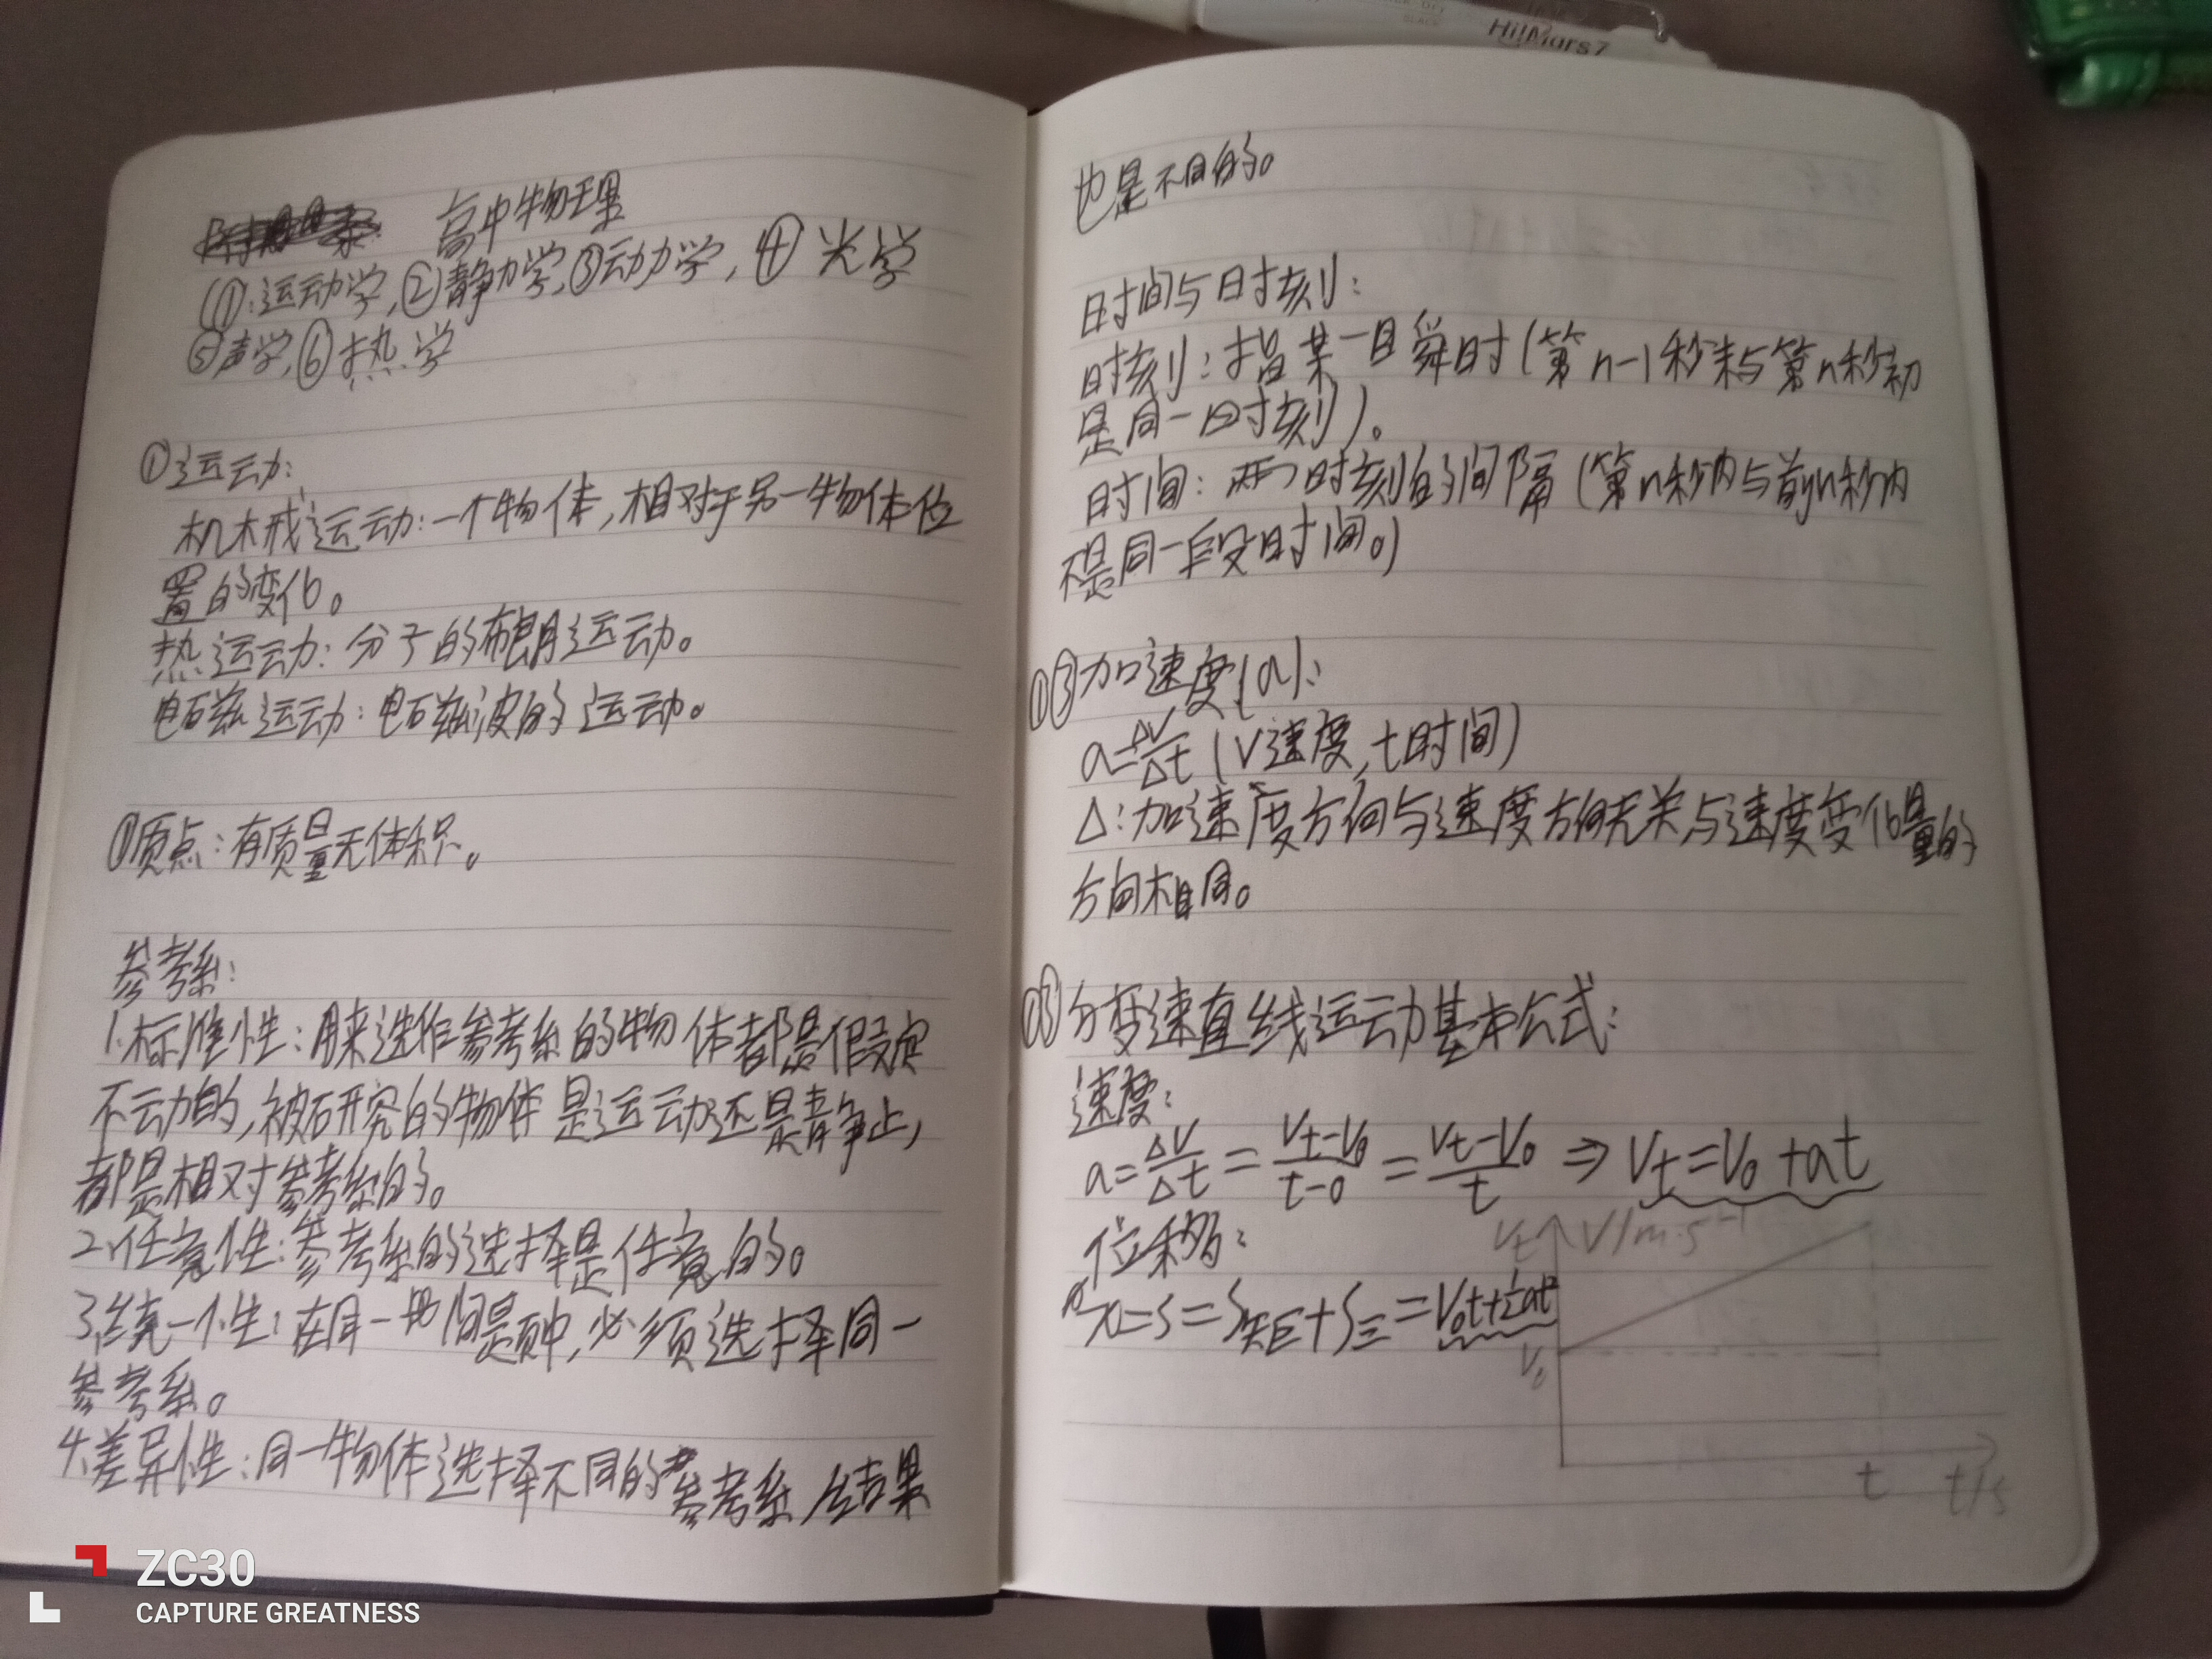 HiMars7
高中物理
(①:运动学,②静力学,③动力学,④光学
⑤声学,⑥热学
①运动:
机械运动:一个物体,相对于另一物体位
置的变化。
热运动:分子的布朗运动。
电磁运动:电磁波的运动。
①质点:有质量无体积。
参考系:
1.标准性:用来选作参考系的物体都是假定
不动的,被研究的物体是运动还是静止,
都是相对参考系的。
2.任意性:参考系的选择是任意的。
3.统一性:在同一 中,必须选择同一
参考系。
4.差异性:同一物体选择不同的参考系,结果
也是不同的。
时间与时刻:
时刻:指某一瞬时(第n-1秒末与第n秒初
是同一时刻)。
时间:两个时刻的间隔(第n秒内与前n秒内
不是同一段时间。)
①③加速度(a):
a=ΔV/Δt (V速度,t时间)
Δ:加速度方向与速度方向无关,与速度变化量的
方向相同。
匀变速直线运动基本公式:
速度:
a=ΔV/Δt=(Vt-V0)/(t-0)=(Vt-V0)/t⇒Vt=V0+at
位移:
x=S=S矩+S三=V0t+½at²
Vt V/m·s⁻¹
V0
t t/s
ZC30
CAPTURE GREATNESS